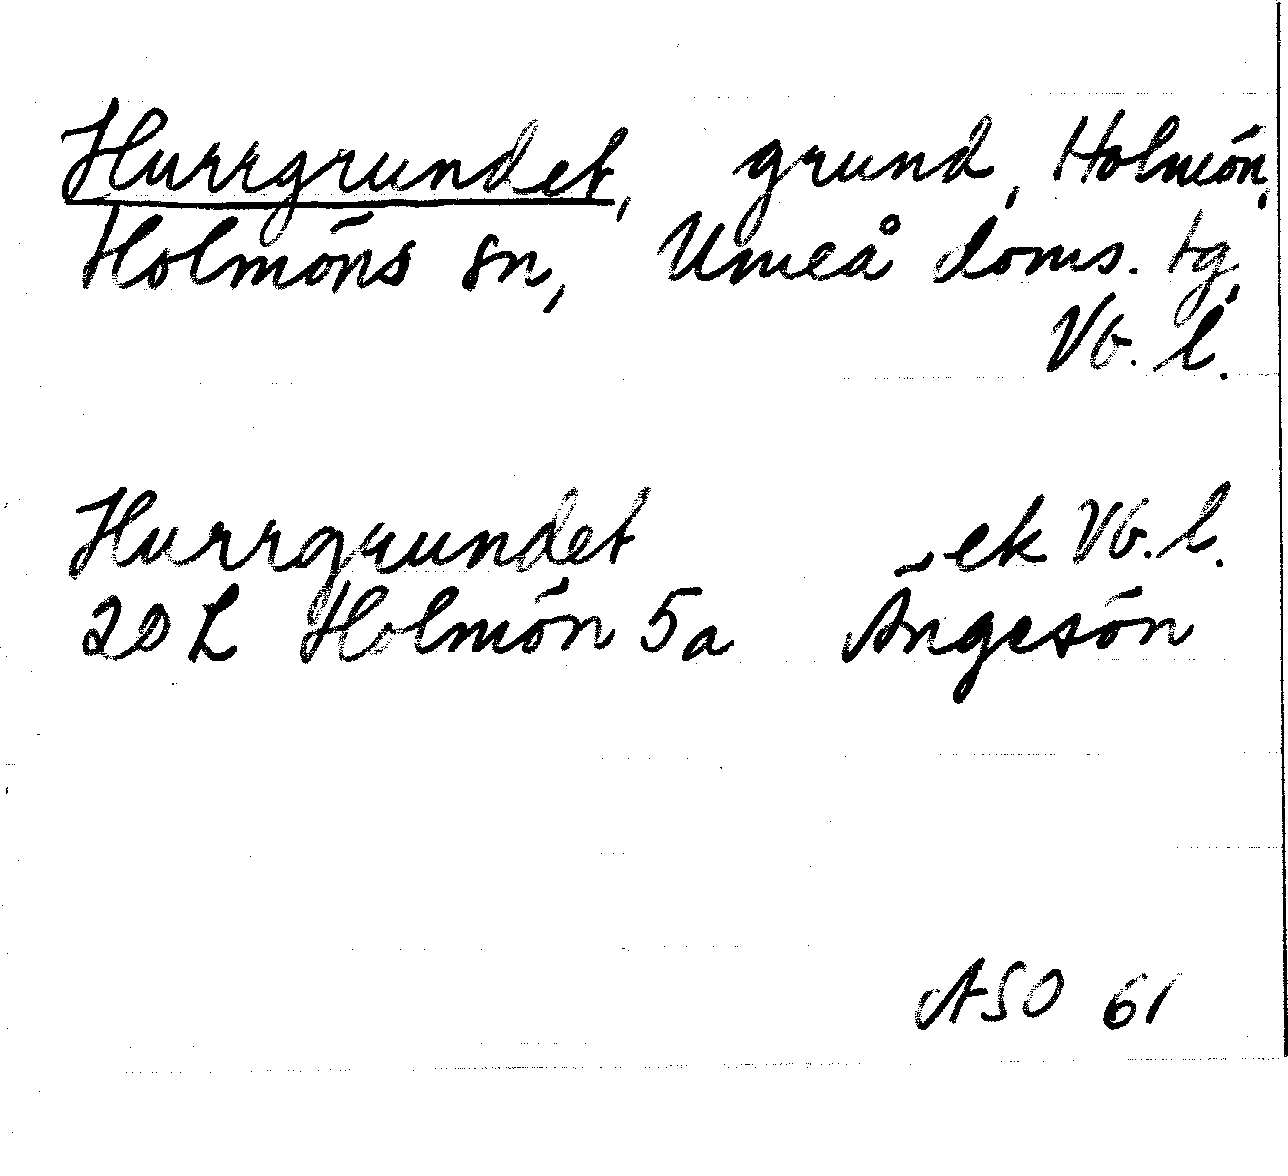 Hurrgrundet, grund, Holmön,
Holmöns sn, Umeå doms. tg,
Vb. l.
Hurrgrundet ek Vb. l.
20 L Holmön 5a Ängesön
ASO 61